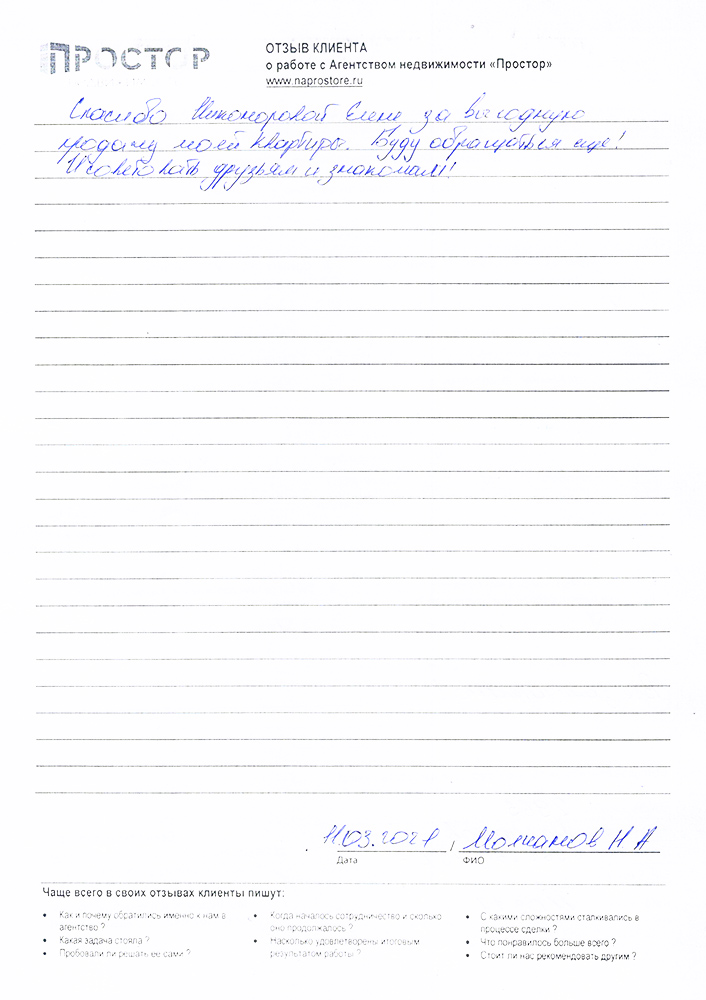 ПРОСТОР
ОТЗЫВ КЛИЕНТА
о работе с Агентством недвижимости «Простор»
www.naprostore.ru
Спасибо Никоноровой Елене за выгодную
продажу моей квартиры. Буду обращаться еще!
И советовать друзьям и знакомым!
11.03.2021, Молчанов Н А
Дата ФИО
Чаще всего в своих отзывах клиенты пишут:
• Как и почему обратились именно к нам в агентство ?
• Какая задача стояла ?
• Пробовали ли решать ее сами ?
• Когда началось сотрудничество и сколько оно продолжалось ?
• Насколько удовлетворены итоговым результатом работы ?
• С какими сложностями сталкивались в процессе сделки ?
• Что понравилось больше всего ?
• Стоит ли нас рекомендовать другим ?